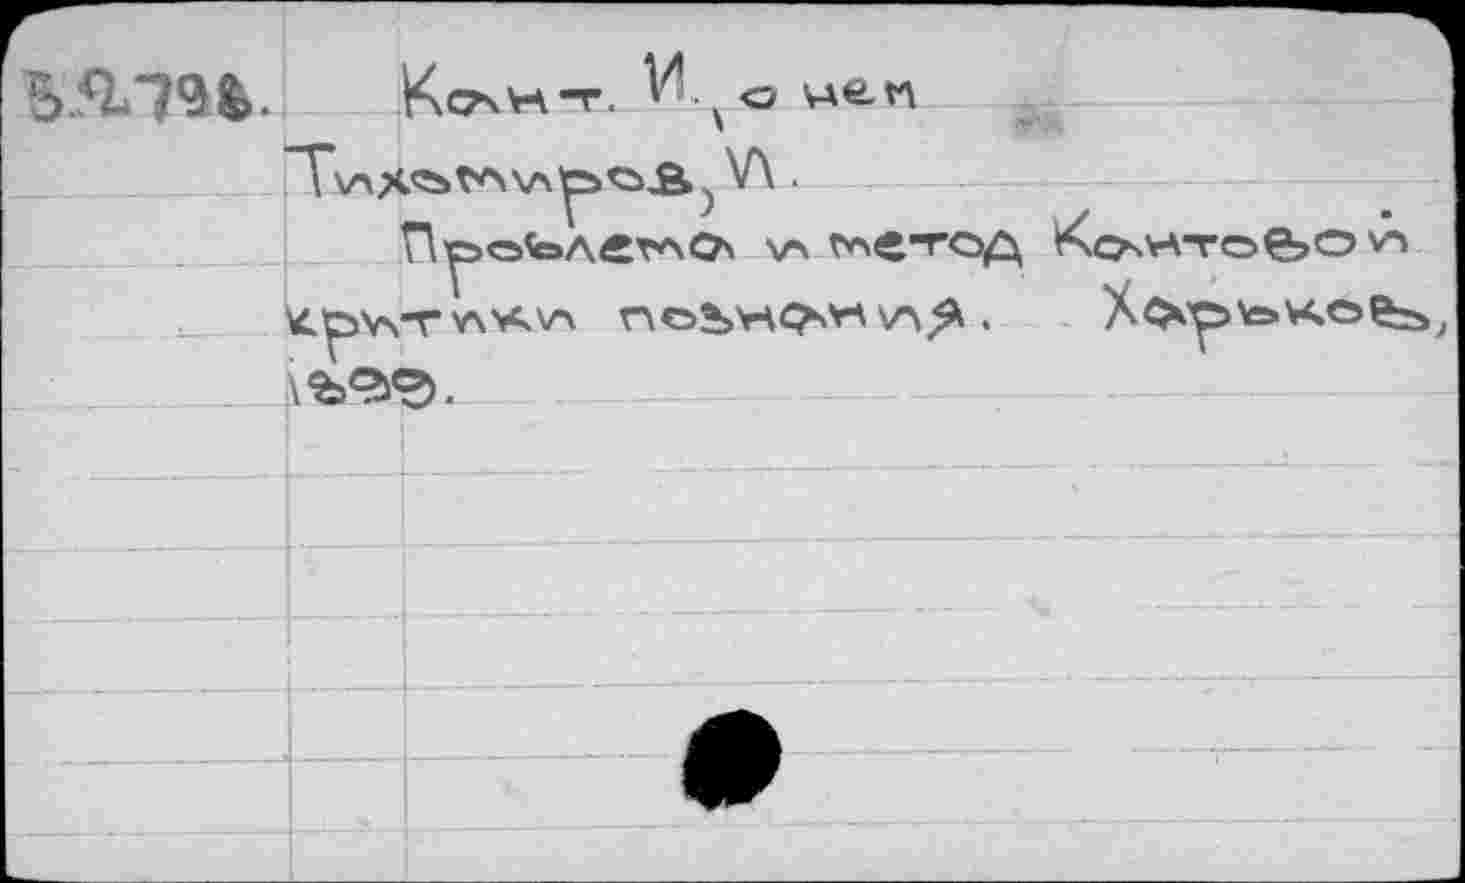 Кант. И., о нем
Тихомиров, И.
Проблема и метод Кантовой
критики познания. Харьков,
1899.